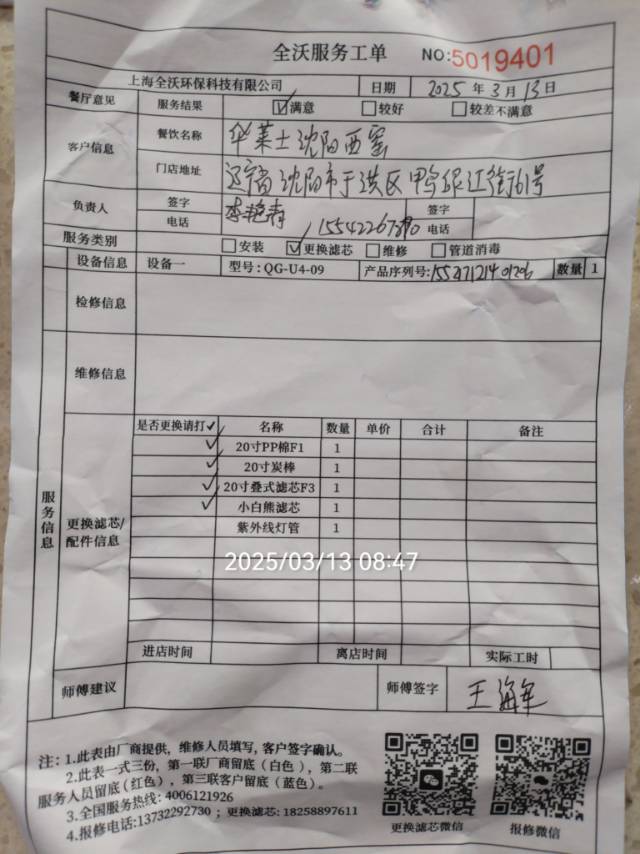 全沃服务工单 NO:5019401
上海全沃环保科技有限公司 日期 2025年3月13日
餐厅意见 服务结果 ☑满意 ☐较好 ☐较差不满意
客户信息 餐饮名称 华莱士沈阳西窑
门店地址 辽宁省沈阳市于洪区 街161号
负责人 签字 李艳青 签字
电话 电话
服务类别 ☐安装 ☑更换滤芯 ☐维修 ☐管道消毒
设备信息 设备一 型号:QG-U4-09 产品序列号: 数量 1
检修信息
维修信息
服务信息
更换滤芯/
配件信息
是否更换请打✓ 名称 数量 单价 合计 备注
✓ 20寸PP棉F1 1
✓ 20寸炭棒 1
✓ 20寸叠式滤芯F3 1
✓ 小白熊滤芯 1
紫外线灯管 1
2025/03/13 08:47
进店时间 离店时间 实际工时
师傅建议 师傅签字 王海军
注：1.此表由厂商提供，维修人员填写，客户签字确认。
2.此表一式三份，第一联厂商留底（白色），第二联
服务人员留底(红色)，第三联客户留底（蓝色）。
3.全国服务热线: 4006121926
4.报修电话:13732292730；更换滤芯: 18258897611
更换滤芯微信 报修微信